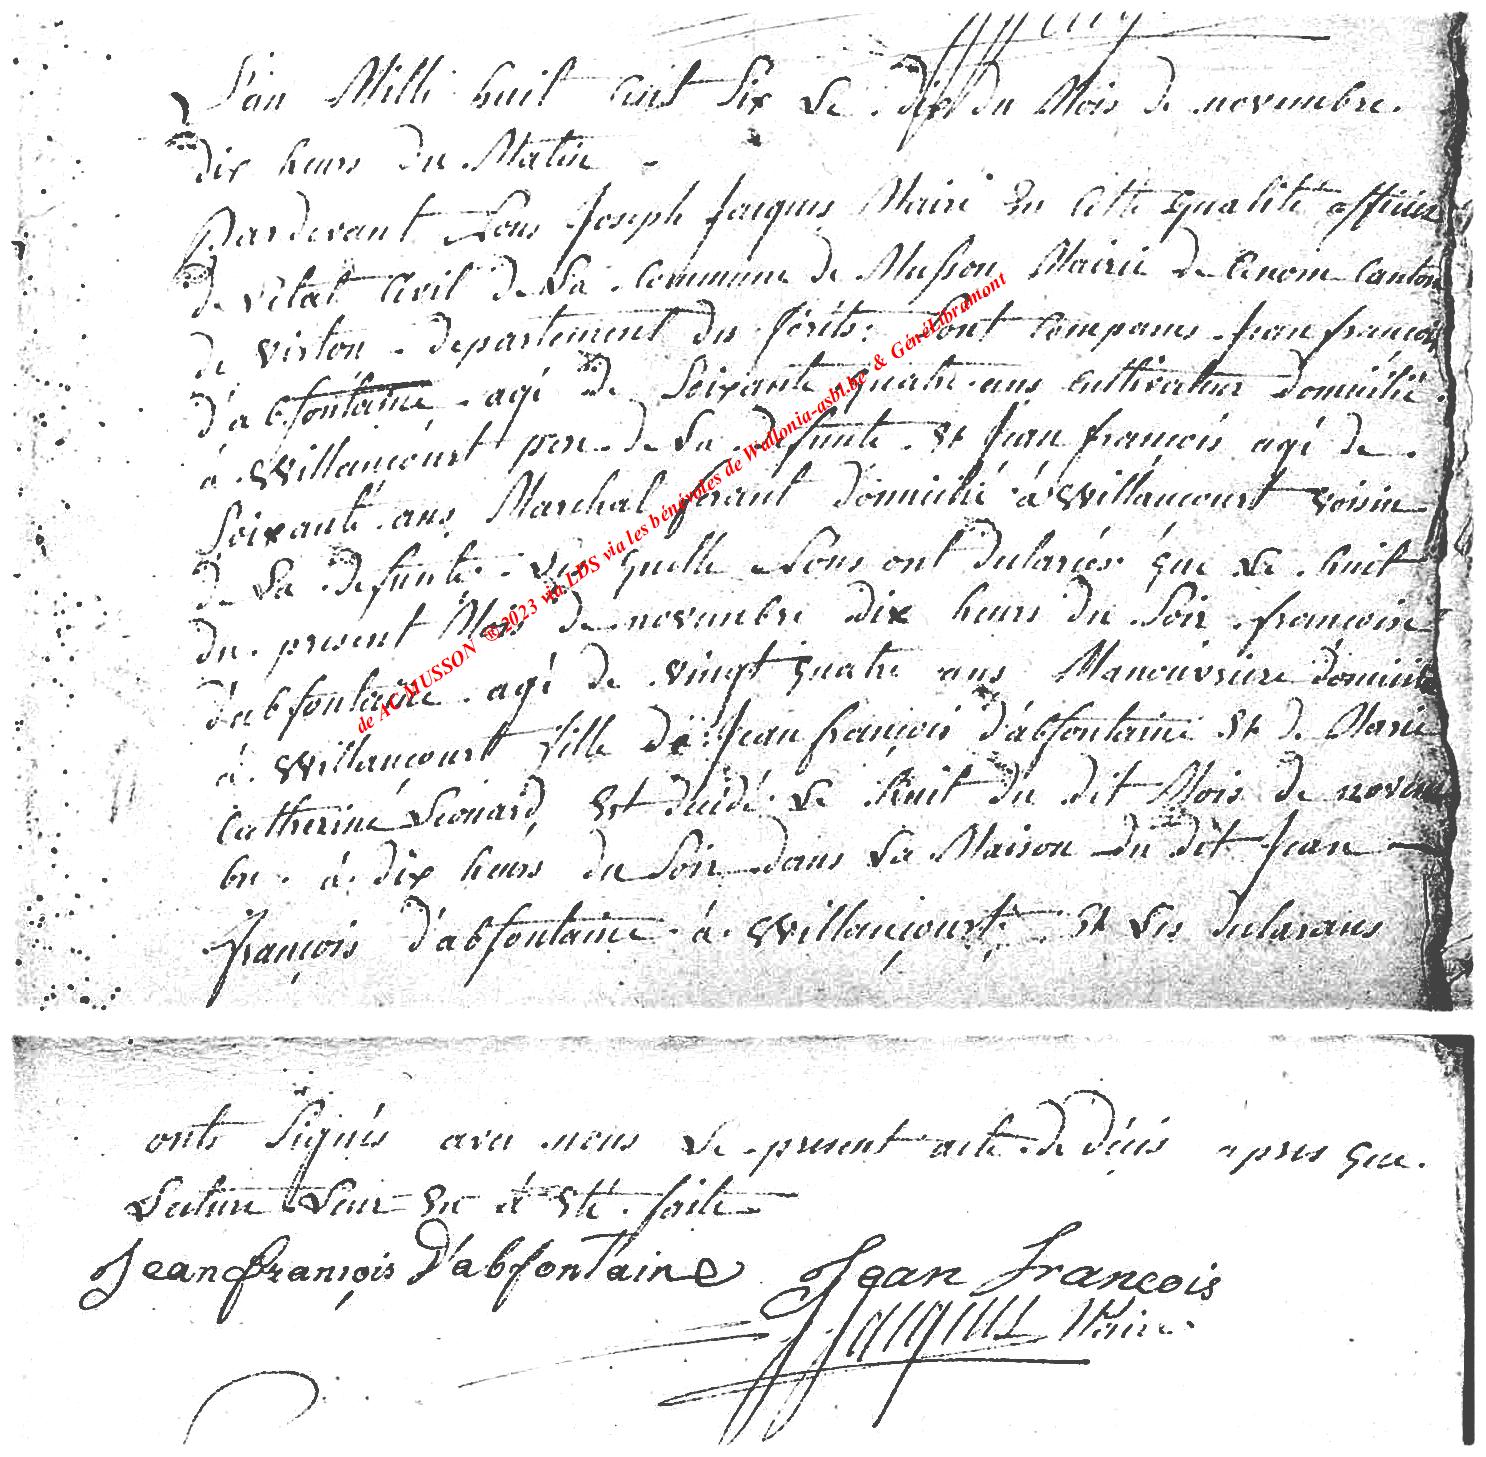 L'an Mille huit Cent Six Le dix du Mois de novembre
dix heurs du Matin
Pardevant Nous Joseph Jacques Maire En Cette qualité officier
de l'état Civil de La Commune de Musson Mairie de Cenom Canton
de virton departement des forêts. Sont Comparus Jean françois
d'abfontaine agé de Soixante quatre ans Cultivateur domicilié
à Willancourt pere de La defunte Et Jean françois agé de
Soixante ans Marchal ferant domicilié à Willancourt voisin
de La defunte Les quelle Nous ont declarés que Le huit
du present Mois de novembre dix heurs du Soir françoise
d'abfontaine agé de vingt quatre ans Manouvriere domicilié
à Willancourt fille de Jean françois d'abfontaine Et de Marie
Catherine Leonard Est decidé Le huit du dit Mois de novem
bre à dix heurs du Soir dans La Maison du dit Jean
françois d'abfontaine à Willancourt Et Les declarans
onts Signés avec nous Le present acte de décis apres que
Lecture Leur En a Eté faite
Jean françois D'abfontaine Jean francois
Jacques Maire
de AC MUSSON ®2023 via LDS via les bénévoles de Wallonia-asbl.be & GénéLibramont